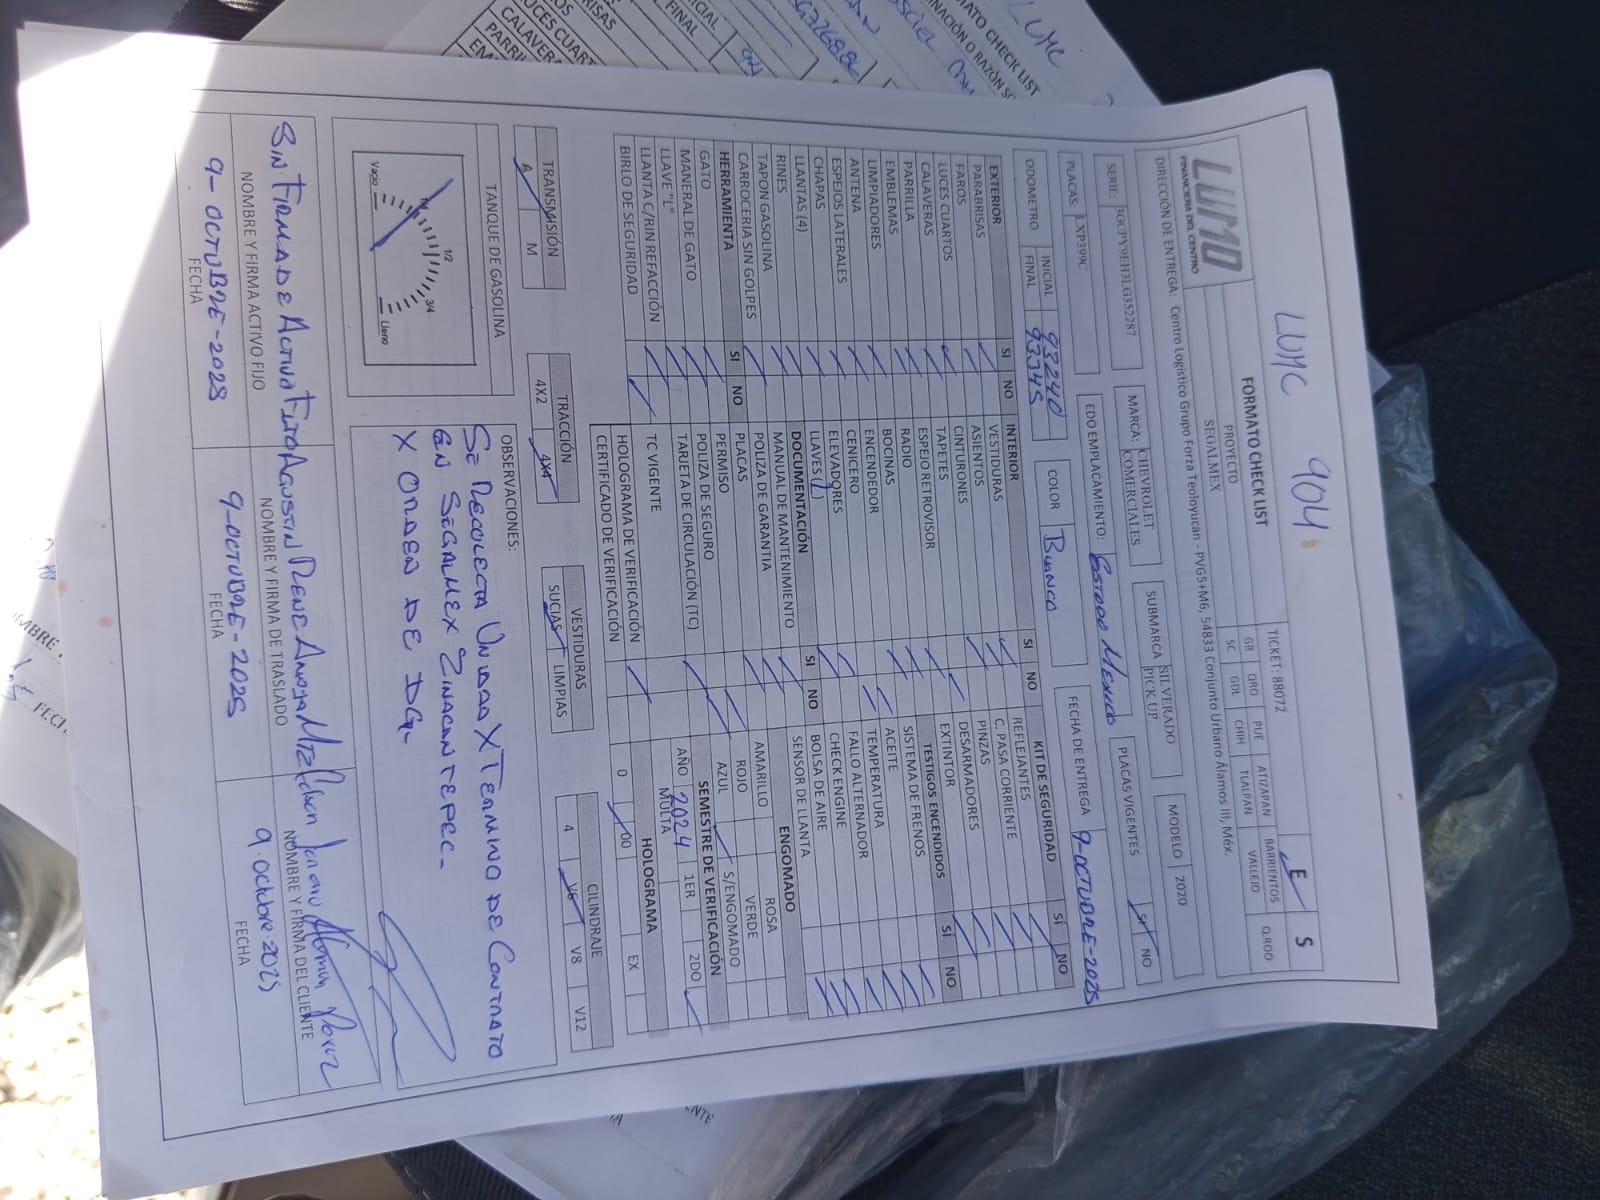 LUMC 904
LUMO
FINANCIERA DEL CENTRO
FORMATO CHECK LIST
TICKET: 88072
E S
PROYECTO
SEGALMEX
GB QRO PUE ATIZAPAN BARRIENTOS Q.ROO
SC GDL CHIH TLALPAN VALLEJO
DIRECCIÓN DE ENTREGA: Centro Logístico Grupo Forza Teoloyucan - PVG5+M6, 54833 Conjunto Urbano Álamos III, Méx.
SERIE: 3GCPY9EH3LG352287 MARCA: CHEVROLET COMERCIALES SUBMARCA SILVERADO PICK UP MODELO 2020
PLACAS: LXP399C EDO EMPLACAMIENTO: ESTADO MEXICO PLACAS VIGENTES SI NO
ODOMETRO INICIAL 93240
FINAL 93345
COLOR BLANCO FECHA DE ENTREGA 9-OCTUBRE-2025
EXTERIOR SI NO
PARABRISAS
FAROS
LUCES CUARTOS
CALAVERAS
PARRILLA
EMBLEMAS
LIMPIADORES
ANTENA
ESPEJOS LATERALES
CHAPAS
LLANTAS (4)
RINES
TAPON GASOLINA
CARROCERIA SIN GOLPES
HERRAMIENTA SI NO
GATO
MANERAL DE GATO
LLAVE "L"
LLANTA C/RIN REFACCIÓN
BIRLO DE SEGURIDAD
INTERIOR SI NO
VESTIDURAS
ASIENTOS
CINTURONES
TAPETES
ESPEJO RETROVISOR
RADIO
BOCINAS
ENCENDEDOR
CENICERO
ELEVADORES
LLAVES
DOCUMENTACIÓN SI NO
MANUAL DE MANTENIMIENTO
POLIZA DE GARANTIA
PLACAS
PERMISO
POLIZA DE SEGURO
TARJETA DE CIRCULACIÓN (TC)
TC VIGENTE
HOLOGRAMA DE VERIFICACIÓN
CERTIFICADO DE VERIFICACIÓN
KIT DE SEGURIDAD SÍ NO
REFLEJANTES
C. PASA CORRIENTE
PINZAS
DESARMADORES
EXTINTOR
TESTIGOS ENCENDIDOS SÍ NO
SISTEMA DE FRENOS
ACEITE
TEMPERATURA
FALLO ALTERNADOR
CHECK ENGINE
BOLSA DE AIRE
SENSOR DE LLANTA
ENGOMADO
AMARILLO ROSA
ROJO VERDE
AZUL S/ENGOMADO
SEMESTRE DE VERIFICACIÓN
AÑO 2024 1ER 2DO
MULTA
HOLOGRAMA
0 00 EX
TRANSMISIÓN
A M
TRACCIÓN
4X2 4X4
VESTIDURAS
SUCIAS LIMPIAS
CILINDRAJE
4 V6 V8 V12
TANQUE DE GASOLINA
Vacio 1/4 1/2 3/4 Lleno
OBSERVACIONES:
SE RECOLECTA UNIDAD X TERMINO DE CONTRATO
EN SEGALMEX ZINACANTEPEC.
X ORDEN DE DG.
SIN FIRMA DE ACTIVO FIJO
NOMBRE Y FIRMA ACTIVO FIJO
NOMBRE Y FIRMA DE TRASLADO
NOMBRE Y FIRMA DEL CLIENTE
9-OCTUBRE-2025
9-OCTUBRE-2025
9.Octubre.2025
FECHA
FECHA
FECHA